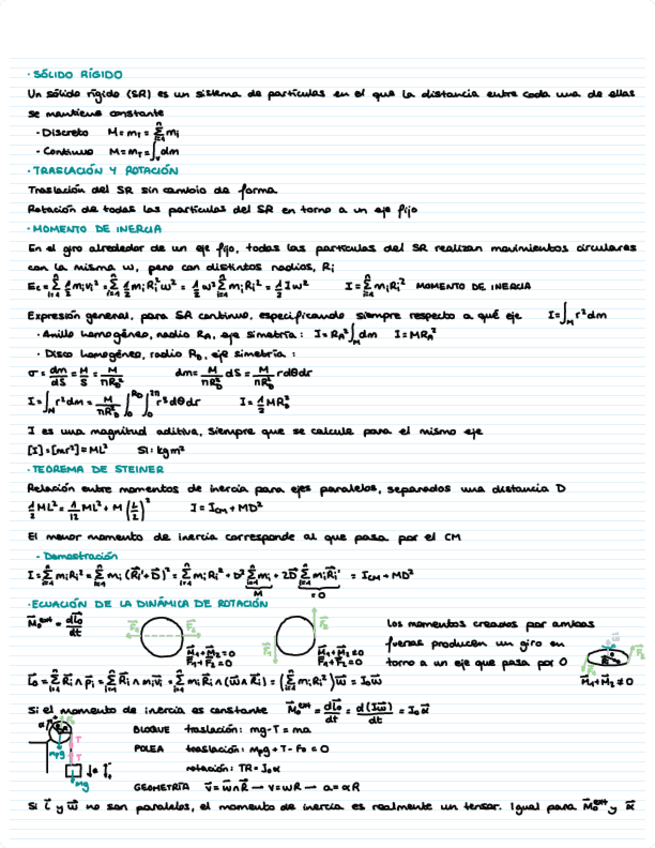 · SÓLIDO RÍGIDO
Un sólido rígido (SR) es un sistema de partículas en el que la distancia entre cada una de ellas
se mantiene constante
· Discreto M = m_T = Σ_{i=1}^{n} m_i
· Continuo M = m_T = ∫_V dm
· TRASLACIÓN Y ROTACIÓN
Traslación del SR sin cambio de forma
Rotación de todas las partículas del SR en torno a un eje fijo
· MOMENTO DE INERCIA
En el giro alrededor de un eje fijo, todas las partículas del SR realizan movimientos circulares
con la misma ω, pero con distintos radios, R_i
E_c = Σ_{i=1}^{n} 1/2 m_i v_i² = Σ_{i=1}^{n} 1/2 m_i R_i² ω² = 1/2 ω² Σ_{i=1}^{n} m_i R_i² = 1/2 I ω² I = Σ_{i=1}^{n} m_i R_i² MOMENTO DE INERCIA
Expresión general, para SR continuo, especificando siempre respecto a qué eje I = ∫_M r² dm
· Anillo homogéneo, radio R_A, eje simetría : I = R_A² ∫ dm I = MR_A²
· Disco homogéneo, radio R_D, eje simetría :
σ = dm/dS = M/S = M/πR_D² dm = M/πR_D² dS = M/πR_D² r dθ dr
I = ∫_M r² dm = M/πR_D² ∫_0^{R_D} ∫_0^{2π} r³ dθ dr I = 1/2 MR_D²
I es una magnitud aditiva, siempre que se calcule para el mismo eje
[I] = [mr²] = ML² SI: kg m²
· TEOREMA DE STEINER
Relación entre momentos de inercia para ejes paralelos, separados una distancia D
1/3 ML² = 1/12 ML² + M (L/2)² I = I_CM + MD²
El menor momento de inercia corresponde al que pasa por el CM
- Demostración
I = Σ_{i=1}^{n} m_i R_i² = Σ_{i=1}^{n} m_i (R⃗_i' + D⃗)² = Σ_{i=1}^{n} m_i R_i² + D² Σ_{i=1}^{n} m_i + 2D⃗ Σ_{i=1}^{n} m_i R⃗_i' = I_CM + MD²
M = 0
· ECUACIÓN DE LA DINÁMICA DE ROTACIÓN
M⃗_o^ext = dL⃗_o/dt
M⃗_1 + M⃗_2 = 0
F⃗_1 + F⃗_2 = 0
M⃗_1 + M⃗_2 ≠ 0
F⃗_1 + F⃗_2 = 0
Los momentos creados por ambas
fuerzas producen un giro en
torno a un eje que pasa por O
M⃗_1 + M⃗_2 ≠ 0
L⃗_o = Σ_{i=1}^{n} R⃗_i ∧ p⃗_i = Σ_{i=1}^{n} R⃗_i ∧ m_i v⃗_i = Σ_{i=1}^{n} m_i R⃗_i ∧ (ω⃗ ∧ R⃗_i) = (Σ_{i=1}^{n} m_i R_i²) ω⃗ = I_o ω⃗
Si el momento de inercia es constante M⃗_o^ext = dL⃗_o/dt = d(Iω⃗)/dt = I_o α⃗
BLOQUE traslación: mg - T = ma
POLEA traslación: M_p g + T - F_o = 0
rotación: TR = I_o α
GEOMETRÍA v⃗ = ω⃗ ∧ R⃗ → v = ωR → a = αR
M_p g
T
T
Mg
Si L⃗ y ω⃗ no son paralelos, el momento de inercia es realmente un tensor. Igual para M⃗_o^ext y α⃗